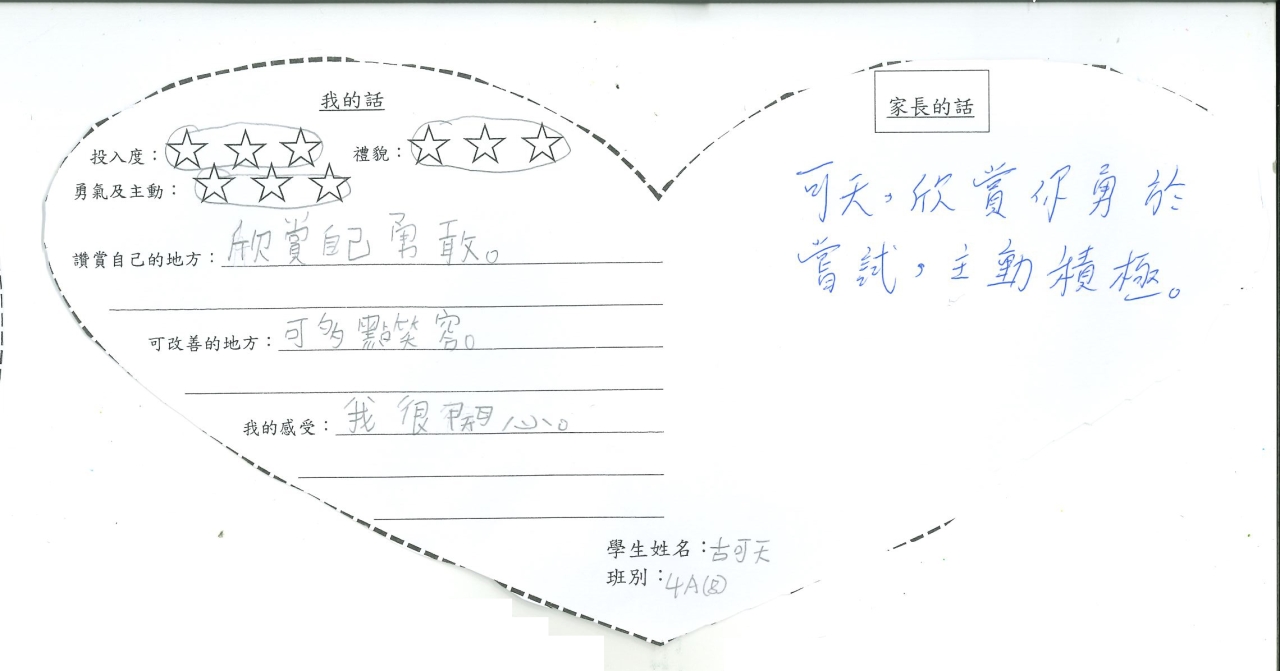 我的話
投入度：☆☆☆ 禮貌：☆☆☆
勇氣及主動：☆☆☆
讚賞自己的地方：欣賞自己勇敢。
可改善的地方：可多點笑容。
我的感受：我很開心。
學生姓名：古可天
班別：4A(8)
家長的話
可天，欣賞你勇於
嘗試，主動積極。